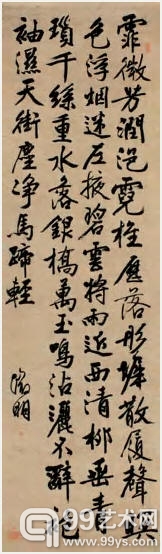 霏微芳潤浥霓旌落彤墀散履聲
色浮烟迷左掖碧雲將雨近西清柳垂青
瑣千絲重水落銀橋萬玉鳴沾灑不辭
袖濕天街塵淨馬蹄輕
明
99艺术网
www.99ys.com